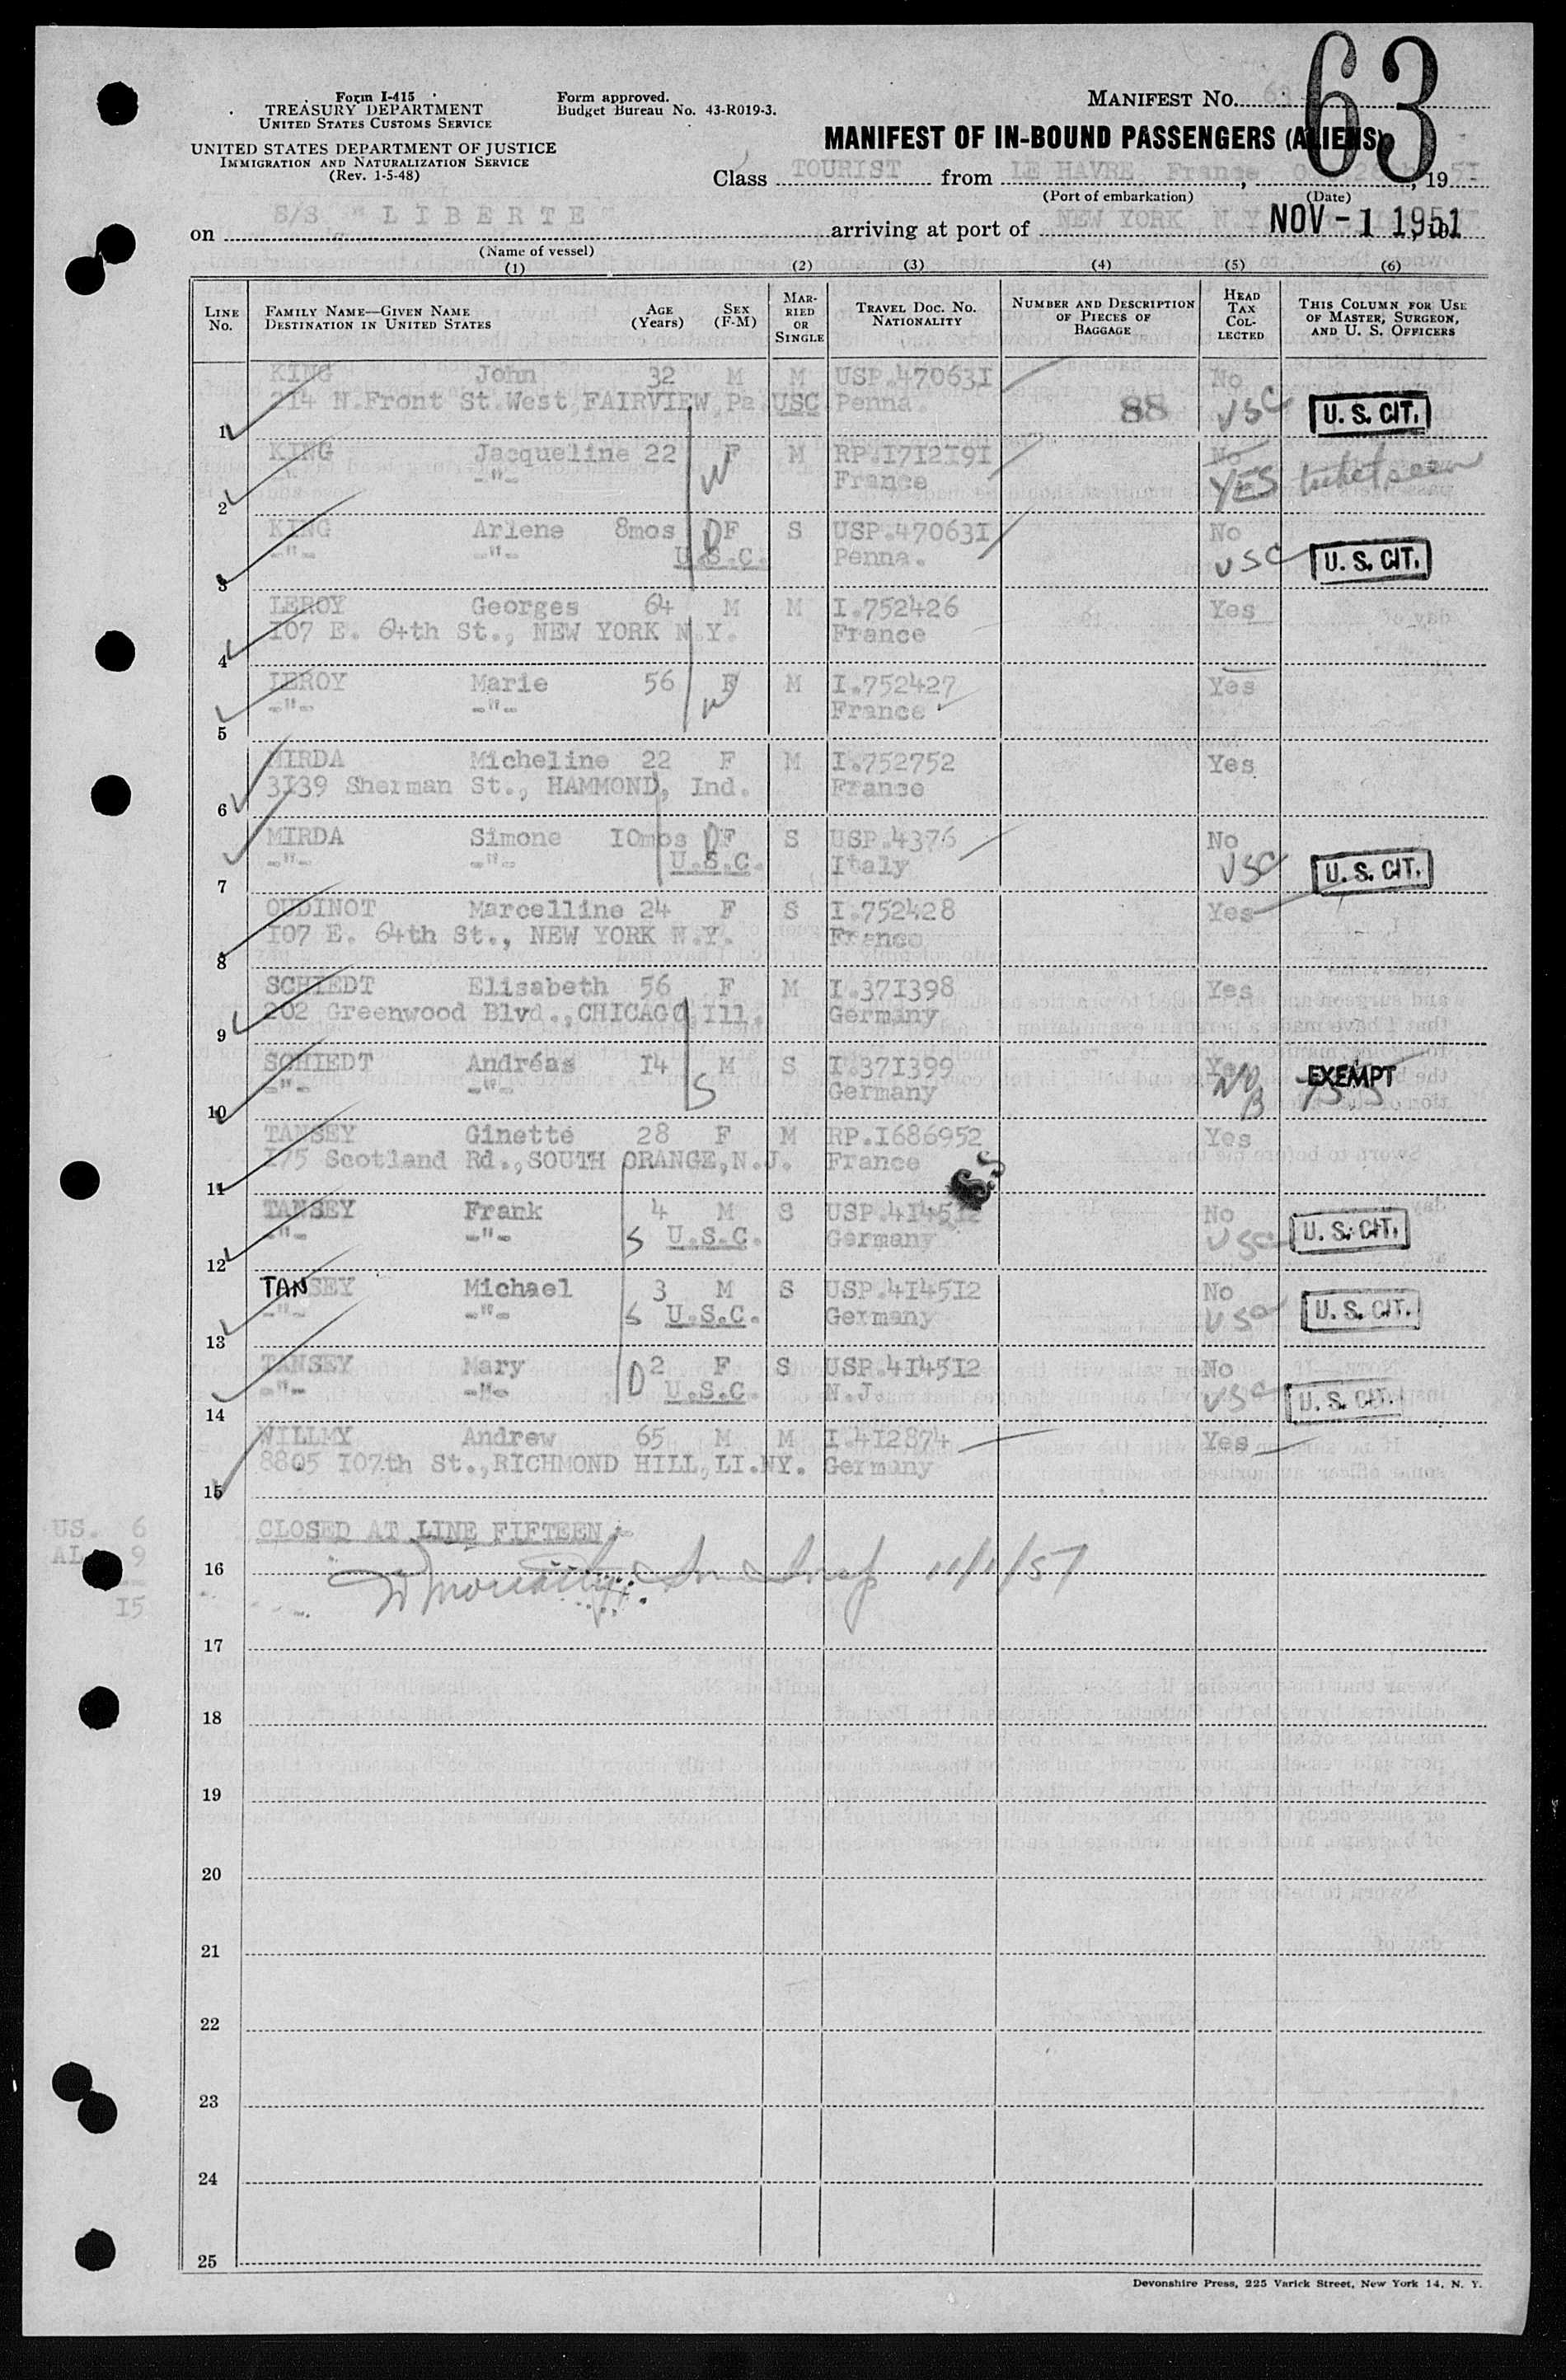 63
Form I-415
TREASURY DEPARTMENT
UNITED STATES CUSTOMS SERVICE
UNITED STATES DEPARTMENT OF JUSTICE
IMMIGRATION AND NATURALIZATION SERVICE
(Rev. 1-5-48)
Form approved.
Budget Bureau No. 43-R019-3.
MANIFEST NO.
MANIFEST OF IN-BOUND PASSENGERS (ALIENS)
Class TOURIST from LE HAVRE France, , 1951
(Port of embarkation) (Date)
on S/S "LIBERTE arriving at port of NEW YORK N.Y. NOV - 1 1951
(Name of vessel)
(1) (2) (3) (4) (5) (6)
LINE No. FAMILY NAME—GIVEN NAME DESTINATION IN UNITED STATES AGE (Years) SEX (F-M) MARRIED OR SINGLE TRAVEL DOC. NO. NATIONALITY NUMBER AND DESCRIPTION OF PIECES OF BAGGAGE HEAD TAX COLLECTED THIS COLUMN FOR USE OF MASTER, SURGEON, AND U. S. OFFICERS
KING John 32 M M USP.470631 No
1 214 N.Front St.West FAIRVIEW,Pa. USC Penna. 88 USC U. S. CIT.
KING Jacqueline 22 F M RP.1712191 No
2 -"- -"- W France YES ticket seen
KING Arlene 8mos D F S USP.470631 No
3 -"- -"- U.S.C. Penna. USC U. S. CIT.
LEROY Georges 64 M M I.752426 Yes
4 107 E. 64th St., NEW YORK N.Y. France
LEROY Marie 56 F M I.752427 Yes
5 -"- -"- W France
MIRDA Micheline 22 F M I.752752 Yes
6 3139 Sherman St., HAMMOND, Ind. France
MIRDA Simone 10mos D F S USP.4376 No
7 -"- -"- U.S.C. Italy USC U. S. CIT.
OUDINOT Marcelline 24 F S I.752428 Yes
8 107 E. 64th St., NEW YORK N.Y. France
SCHIEDT Elisabeth 56 F M I.371398 Yes
9 202 Greenwood Blvd.,CHICAGO,Ill. Germany
SCHIEDT Andréas 14 M S I.371399 Yes EXEMPT
10 -"- -"- S Germany No
TANSEY Ginette 28 F M RP.1686952 Yes
11 175 Scotland Rd.,SOUTH ORANGE,N.J. France
TANSEY Frank 4 M S USP.414512 No
12 -"- -"- S U.S.C. Germany USC U. S. CIT.
TANSEY Michael 3 M S USP.414512 No
13 -"- -"- S U.S.C. Germany USC U. S. CIT.
TANSEY Mary 2 F S USP.414512 No
14 -"- -"- D U.S.C. N.J. USC U. S. CIT.
WILLMY Andrew 65 M M I.412874 Yes
15 8805 107th St.,RICHMOND HILL,LI.NY. Germany
US. 6 CLOSED AT LINE FIFTEEN.-
AL. 9
16 11/1/51
15
17
18
19
20
21
22
23
24
25
Devonshire Press, 225 Varick Street, New York 14, N. Y.